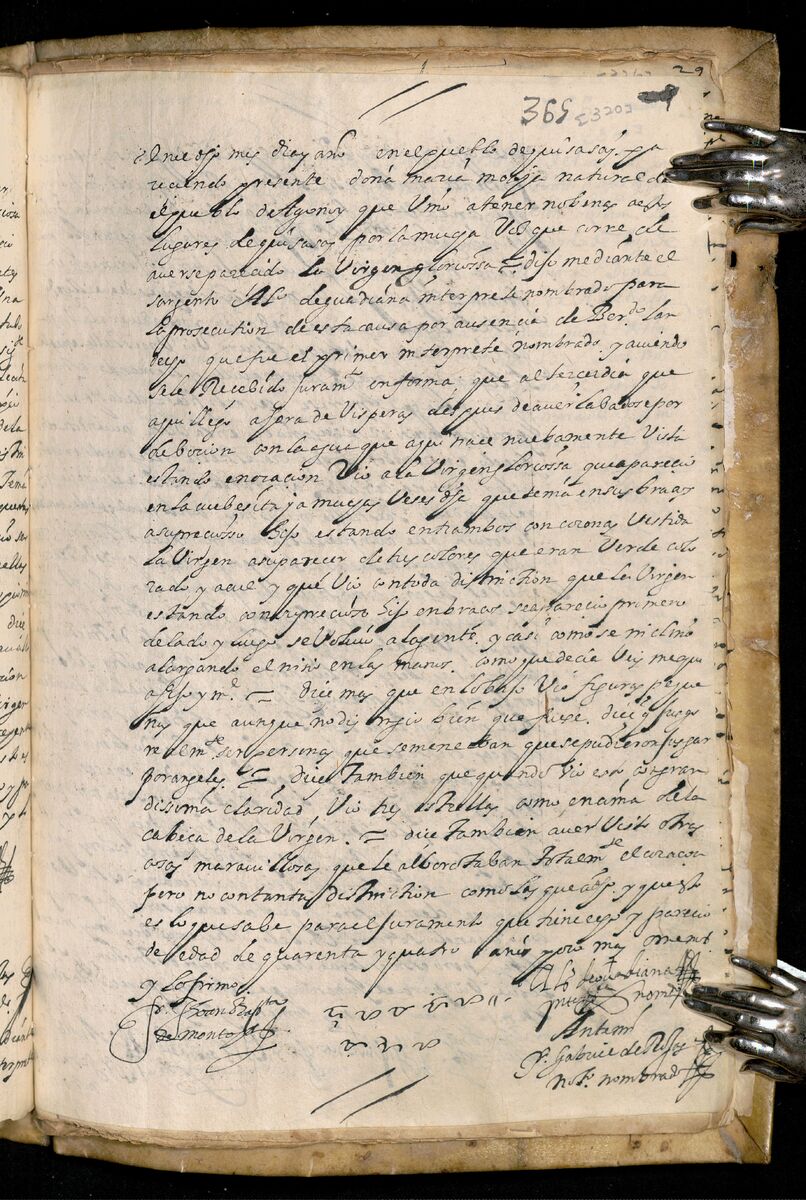 29
365
53203
En el dho mes dia y año en el pueblo de quisasas pa
reciendo presente doña maria monja natural de
el pueblo de que Vino a tener nobenas a estos
lugares de quisasas por la mucha Vos que corre de
averse parecido la Virgen gloriossa dijo mediante el
sargento Alo de guadiana interprete nombrado para
la prosecution de esta causa por ausencia de Berdo
que fue el primer interprete nombrado y aviendo
sele Recebido juramto en forma que al tercer dia que
aqui llego a hora de Visperas despues de averse labadose por
deboción con la agua que aqui nace nuebamente Vista
estando en oracion Vio a la Virgen gloriossa que aparecio
en la cabesita ya muchas Veses dha que tenia en sus braços
a su precioso hijo estando entrambos con coronas Vestida
la Virgen a su parecer de tres colores que eran Verde colo
rado y açul y que Vio con toda distinction que la Virgen
estando con su precioso hijo en braços se aparecio primero
de lado y luego se Volvio a la gente y casi como se inclino
alargando el niño en las manos como que decia Veis me aqui
a hijo y me = dice mas que en lo bajo Vio figuras peque
ñas que aunque no distinguio bien que fuese dice q juzgo
realmte ser personas que se meneaban que se pudieron jusgar
por angeles = dice tambien que quando Vio esto con gran
dissima claridad Vio tres estrellas como ensima de la
cabeça de la Virgen = dice tambien aver Visto otras
cosas maravillosas que le alborotaban totalmte el coraçon
pero no con tanta distinction como las que a dho y que esto
es lo que sabe para el juramento que tiene echo y parecio
de edad de quarenta y quatro años poco mas o menos
y lo firmo
fr Joan Bapta
de montoya
Alo de guadiana
interprete nomdo
Ante mi
Fr. Gabriel de Rojas
noto nombrado